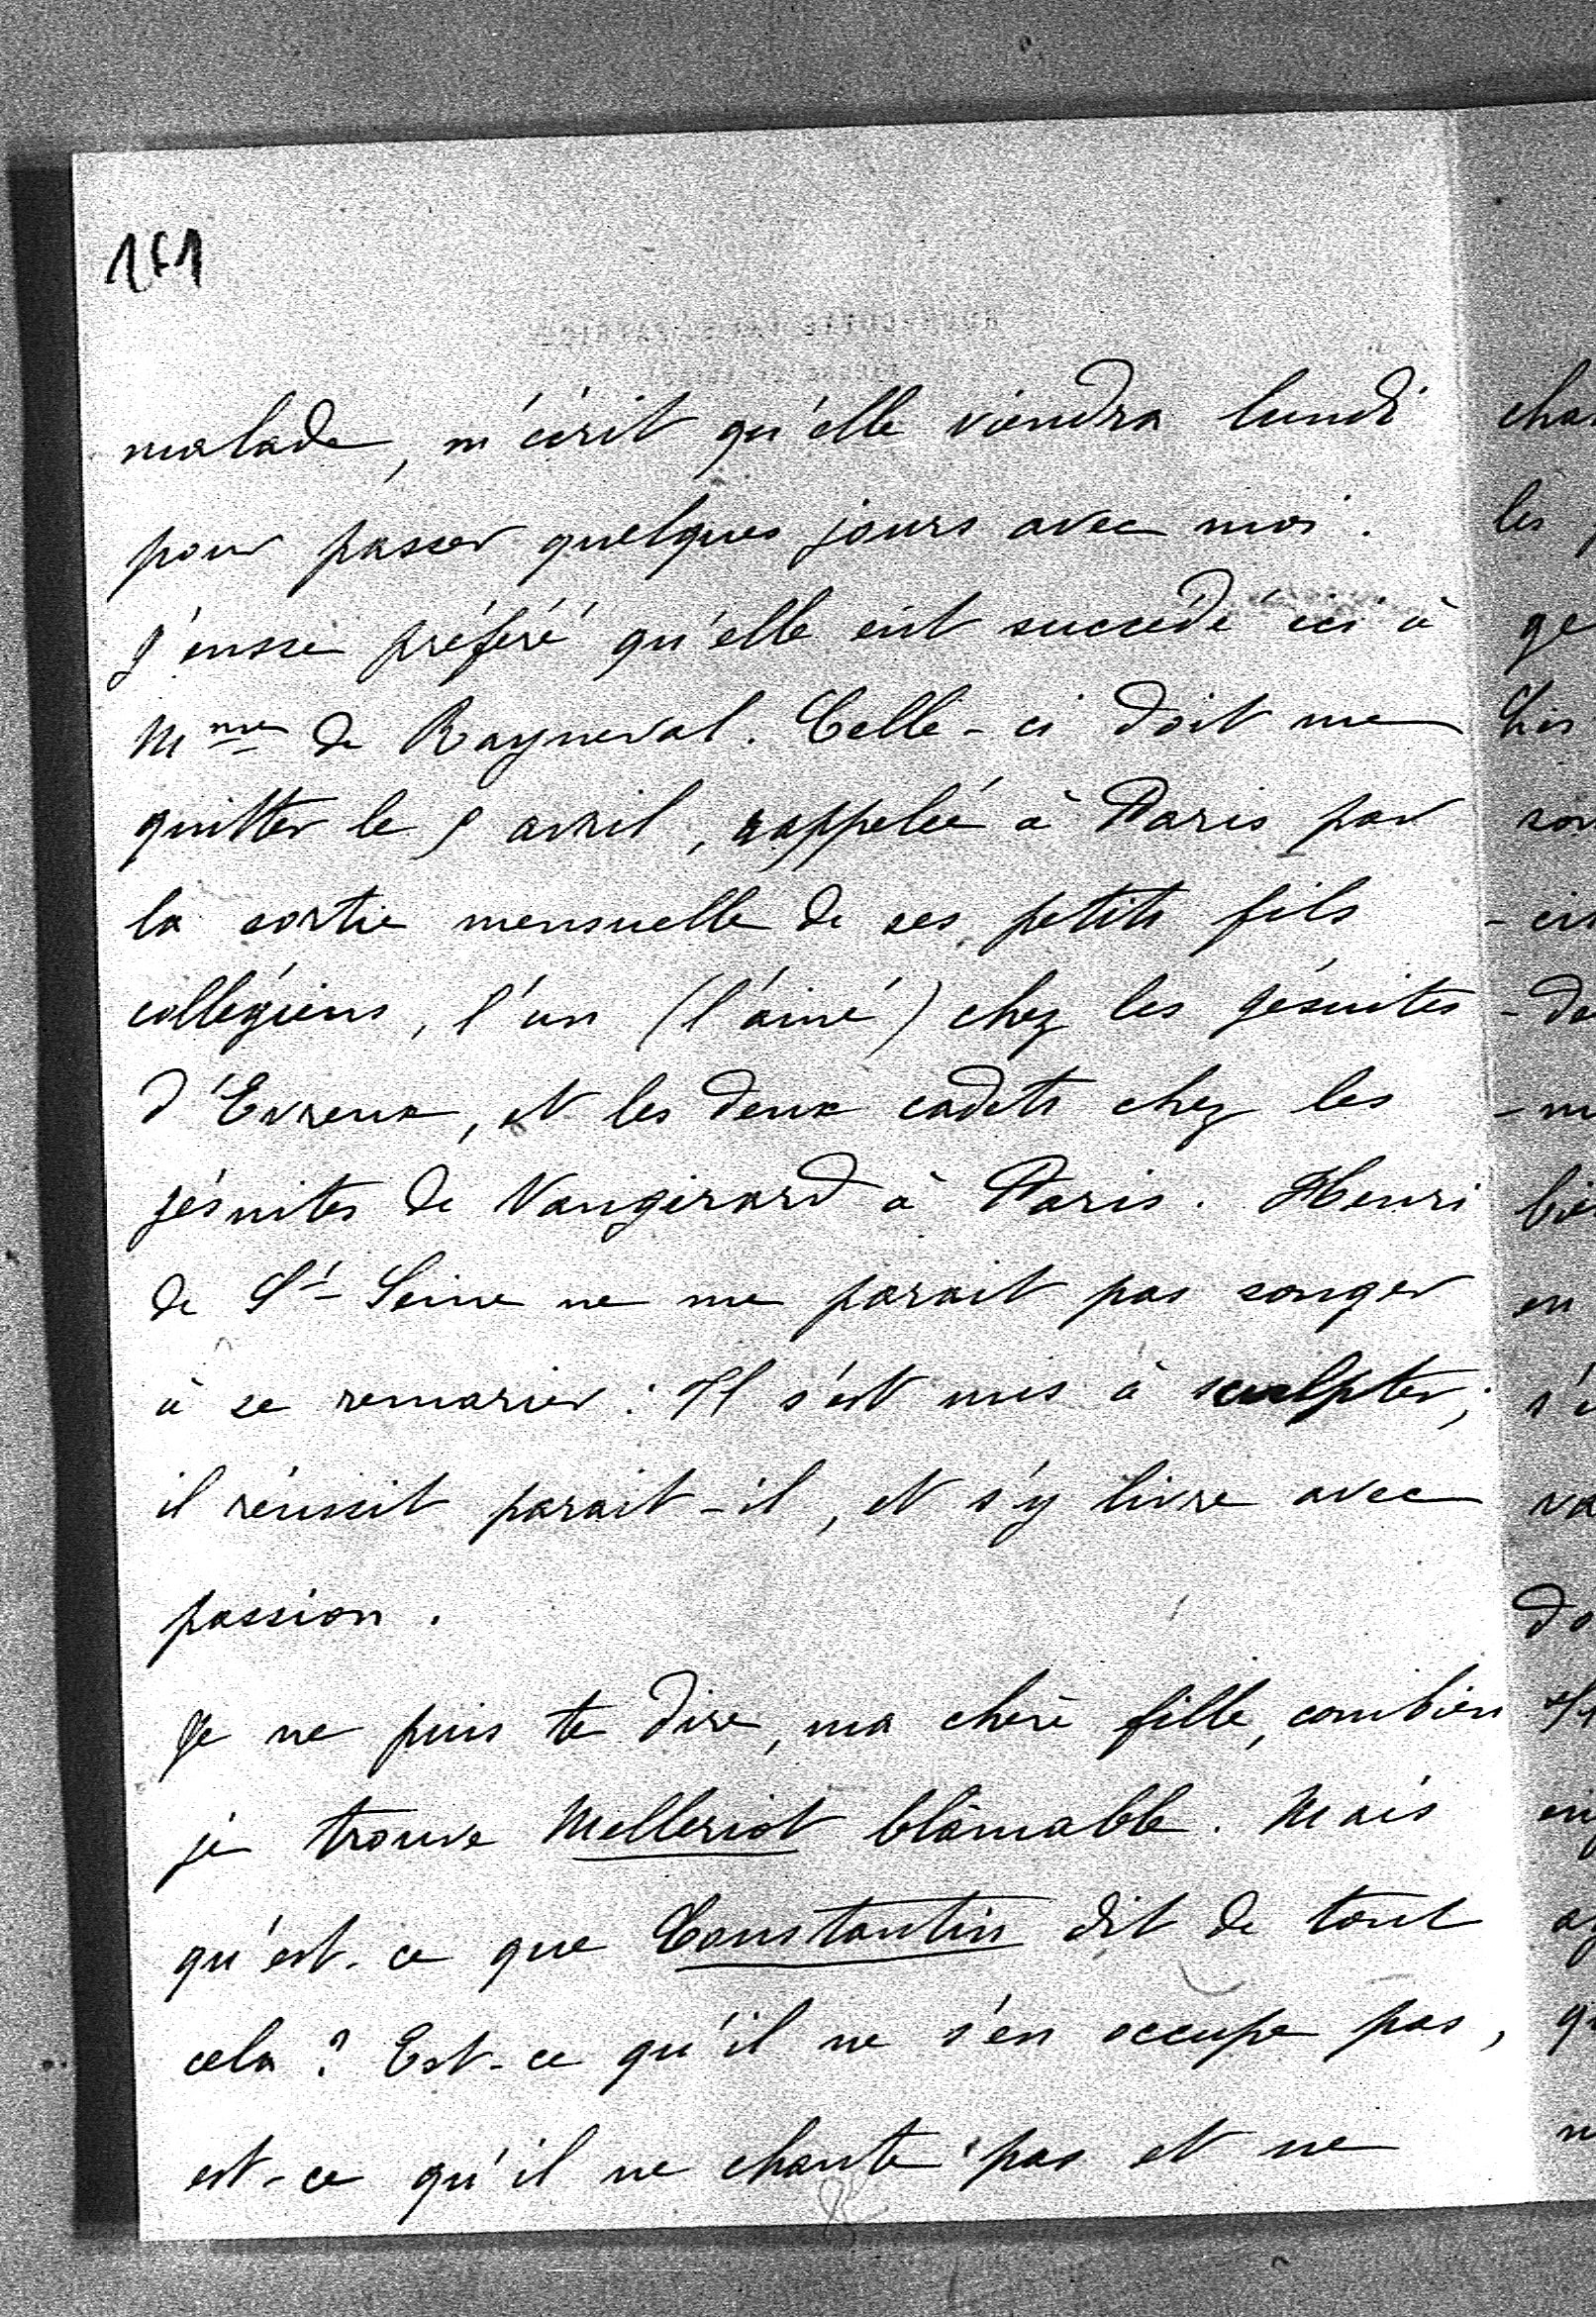 malade, m'écrit qu'elle viendra lundi
pour passer quelques jours avec moi.
J'eusse préféré qu'elle eût succédé ici à
Mme de Rayneval. Celle-ci doit me
quitter le 9 avril, rappelée à Paris par
la sortie mensuelle de ses petits fils
collégiens, l'un (l'ainé) chez les jésuites
d'Evreux, et les deux cadets chez les
jésuites de Vaugirard à Paris. Henri
de St-Seine ne me parait pas songer
à se remarier: Il s'est mis à sculpter;
il réussit parait-il, et s'y livre avec
passion.
Je ne puis te dire, ma chère fille, combien
je trouve Melleriot blâmable. Mais
qu'est-ce que Constantin dit de tout
cela? Est-ce qu'il ne s'en occupe pas,
est-ce qu'il ne chante pas et ne